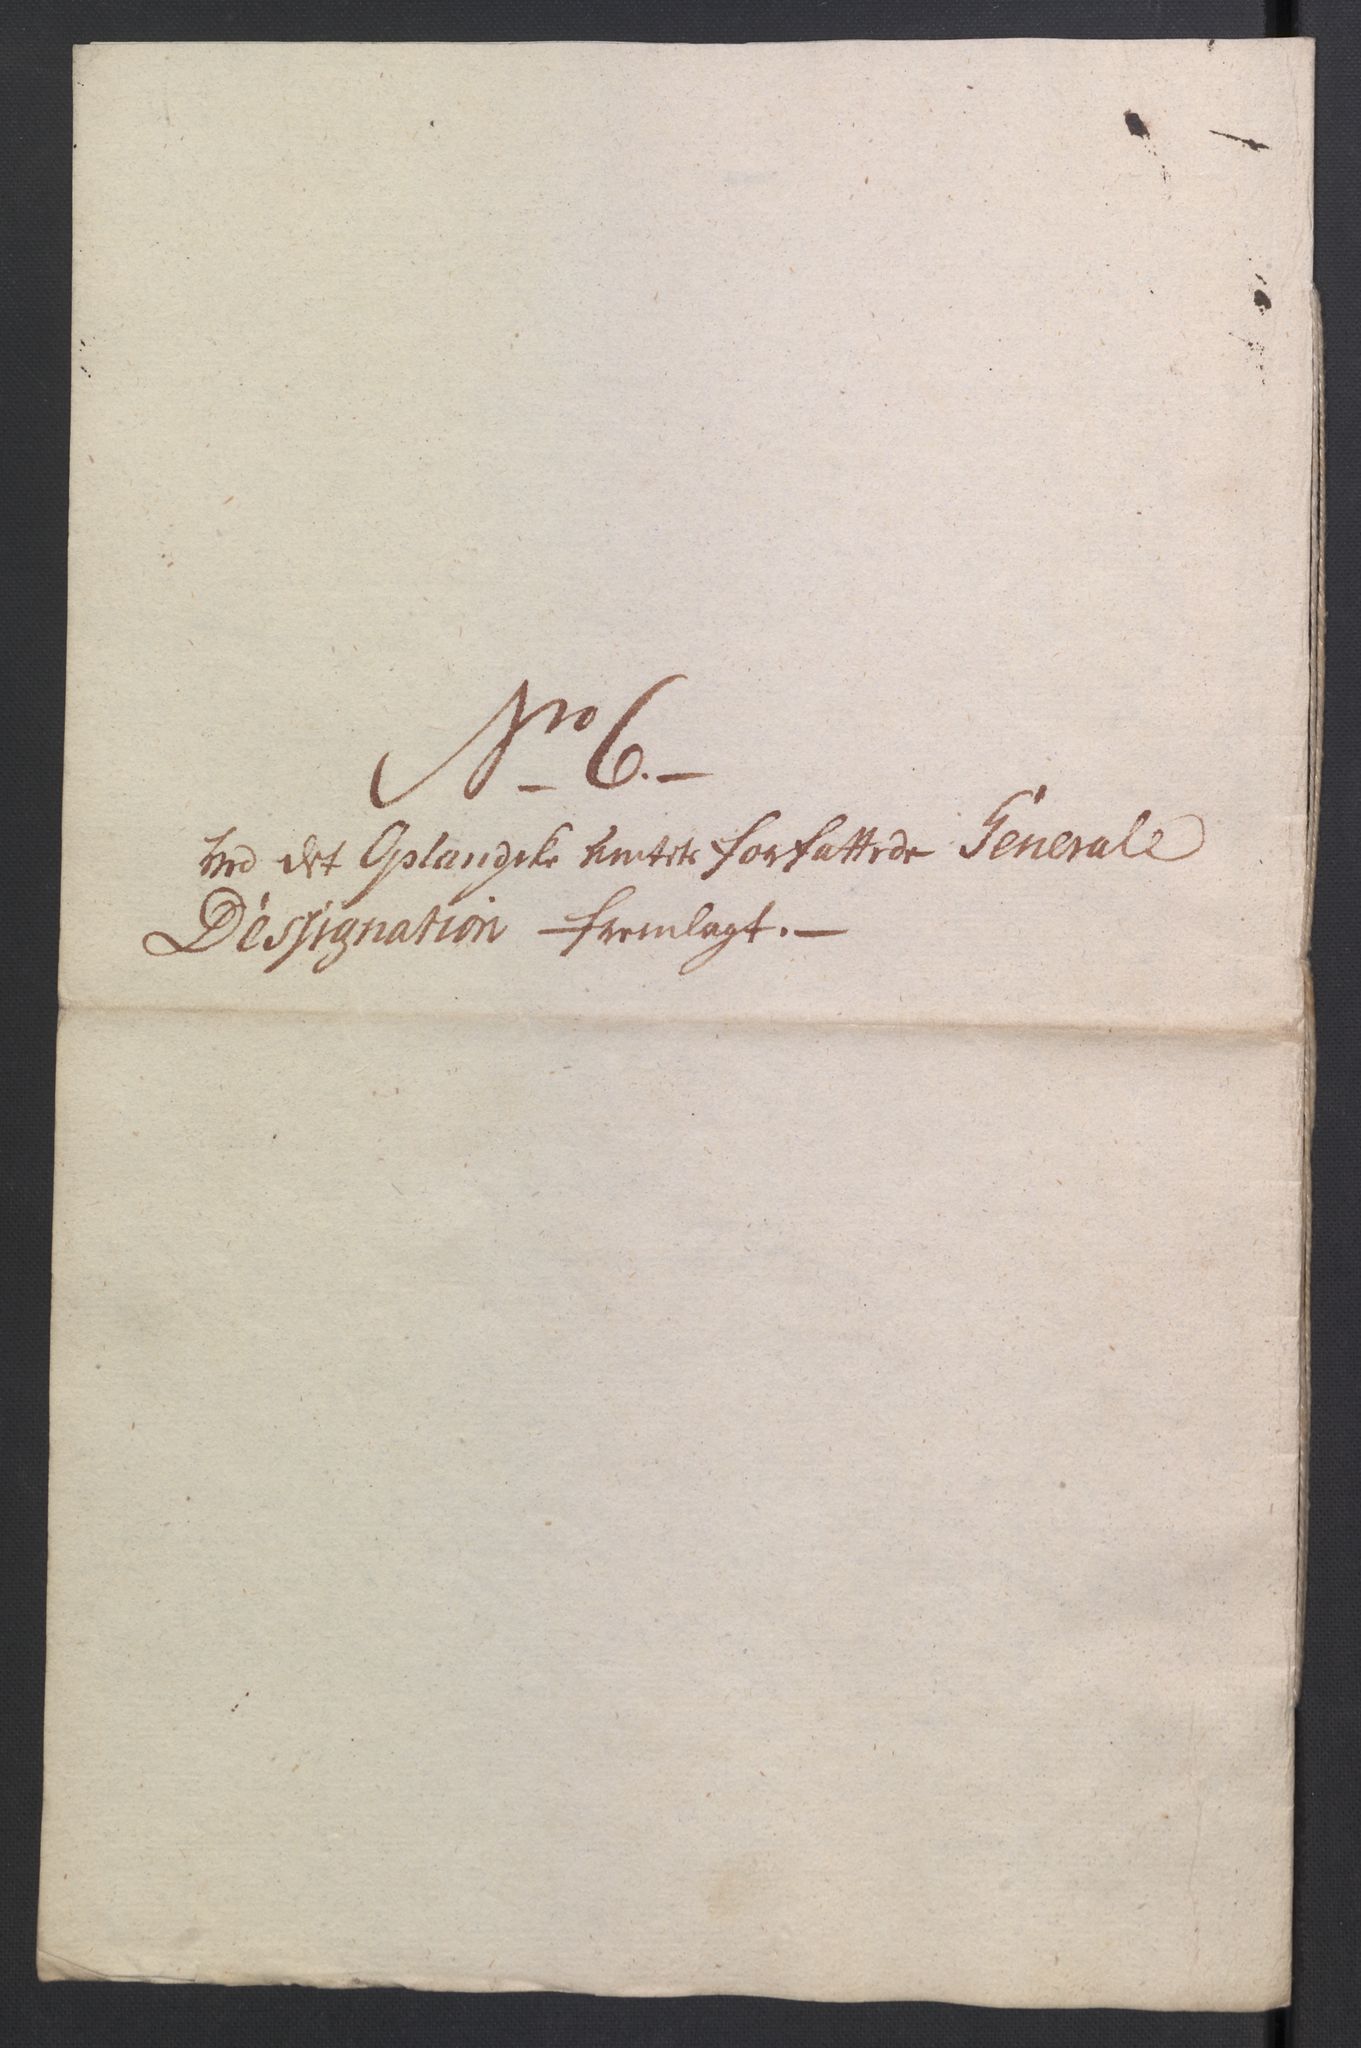 Nro 6.
ved det Oplandske Amtets forfattede Generale
Dessignation fremlagt.